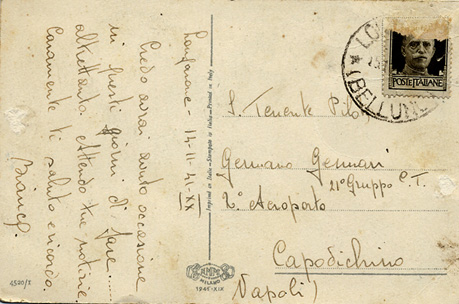 Longarone - 14-11-41-XX
Credo avrai avuto occasione
in questi giorni di fare....
altrettanto. Attendo tue notizie.
Caramente ti saluto e ricordo
Bianca.
4500/1
Imprimé en Italie - Stampato in Italia - Printed in Italy
MILANO
1941-XIX
LO
(BELLUNO
POSTE ITALIANE
S. Tenente Pilo
Gennaro Gennari
21° Gruppo C.T.
2° Aeroporto
Capodichino
(Napoli)